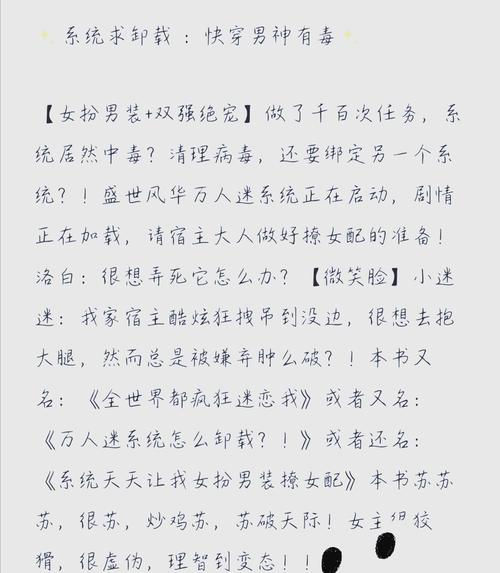 系统求卸载：快穿男神有毒
【女扮男装+双强绝宠】做了千百次任务，系
统居然中毒？清理病毒，还要绑定另一个系
统？！盛世风华万人迷系统正在启动，剧情
正在加载，请宿主大人做好撩女配的准备！
洛白：很想弄死它怎么办？【微笑脸】小迷
迷：我家宿主酷炫狂拽吊到没边，很想去抱
大腿，然而总是被嫌弃肿么破？！本书又
名：《全世界都疯狂迷恋我》或者又名：
《万人迷系统怎么卸载？！》或者还名：
《系统天天让我女扮男装撩女配》本书苏苏
苏，很苏，炒鸡苏，苏破天际！女主 狡
猾，很虚伪，理智到变态！！